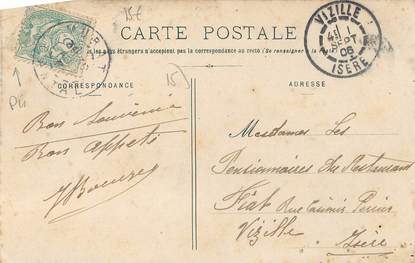 15€
CARTE POSTALE
pays étrangers n'acceptent pas la correspondance au recto (Se renseigner
VIZILLE
4
SEPT
06
ISÈRE
15
Pli
CORRESPONDANCE
ADRESSE
Bon Souvenir
Bon appétit
Mesdames Les
Pensionnaires du Restaurant
Fiat Rue Casimir Perier
Vizille
Isère